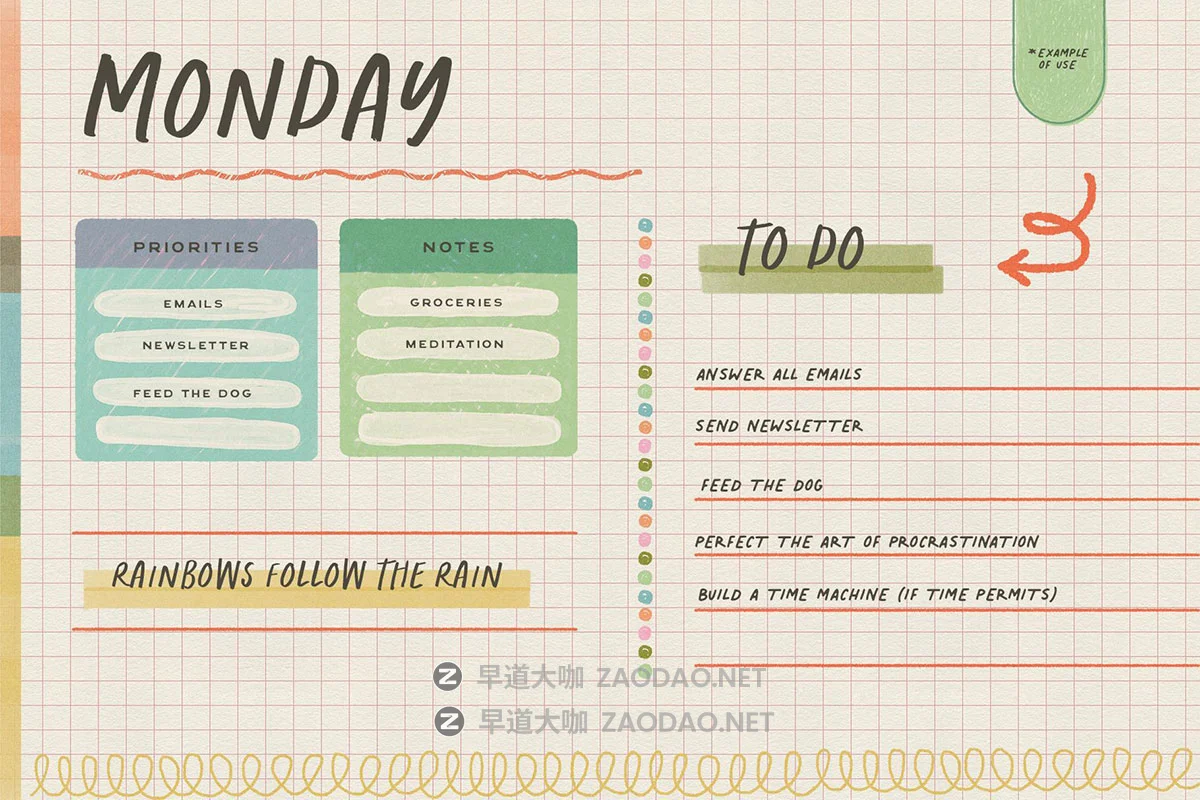 MONDAY
*EXAMPLE
OF USE
PRIORITIES
EMAILS
NEWSLETTER
FEED THE DOG
NOTES
GROCERIES
MEDITATION
TO DO
ANSWER ALL EMAILS
SEND NEWSLETTER
FEED THE DOG
PERFECT THE ART OF PROCRASTINATION
BUILD A TIME MACHINE (IF TIME PERMITS)
RAINBOWS FOLLOW THE RAIN
Z 早道大咖 ZAODAO.NET
Z 早道大咖 ZAODAO.NET